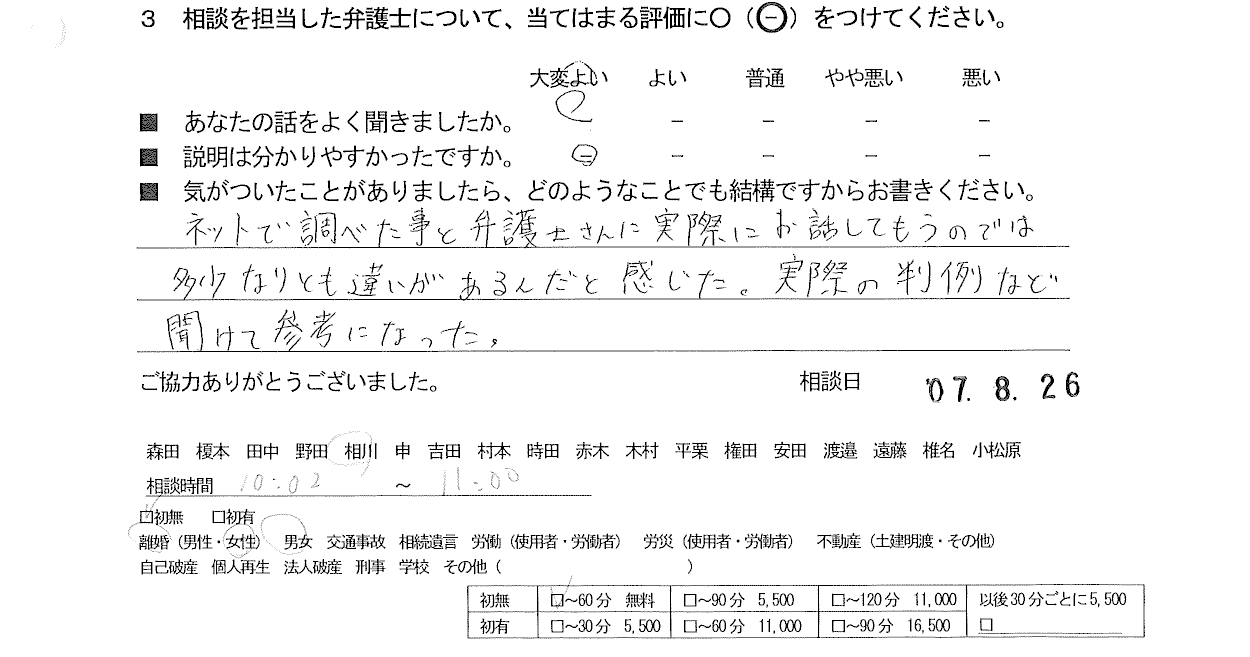 3 相談を担当した弁護士について、当てはまる評価に〇（㊀）をつけてください。
大変よい よい 普通 やや悪い 悪い
■ あなたの話をよく聞きましたか。 － － － －
■ 説明は分かりやすかったですか。 － － － － －
■ 気がついたことがありましたら、どのようなことでも結構ですからお書きください。
ネットで調べた事と弁護士さんに実際にお話してもうのでは
多少なりとも違いがあるんだと感じた。実際の判例など
聞けて参考になった。
ご協力ありがとうございました。 相談日 '07. 8. 26
森田 榎本 田中 野田 相川 申 吉田 村本 時田 赤木 木村 平栗 権田 安田 渡邉 遠藤 椎名 小松原
相談時間 10:02 ～ 11:00
□初無 □初有
離婚（男性・女性） 男女 交通事故 相続遺言 労働（使用者・労働者） 労災（使用者・労働者） 不動産（土建明渡・その他）
自己破産 個人再生 法人破産 刑事 学校 その他（ ）
初無 □～60分 無料 □～90分 5,500 □～120分 11,000 以後30分ごとに5,500
初有 □～30分 5,500 □～60分 11,000 □～90分 16,500 □